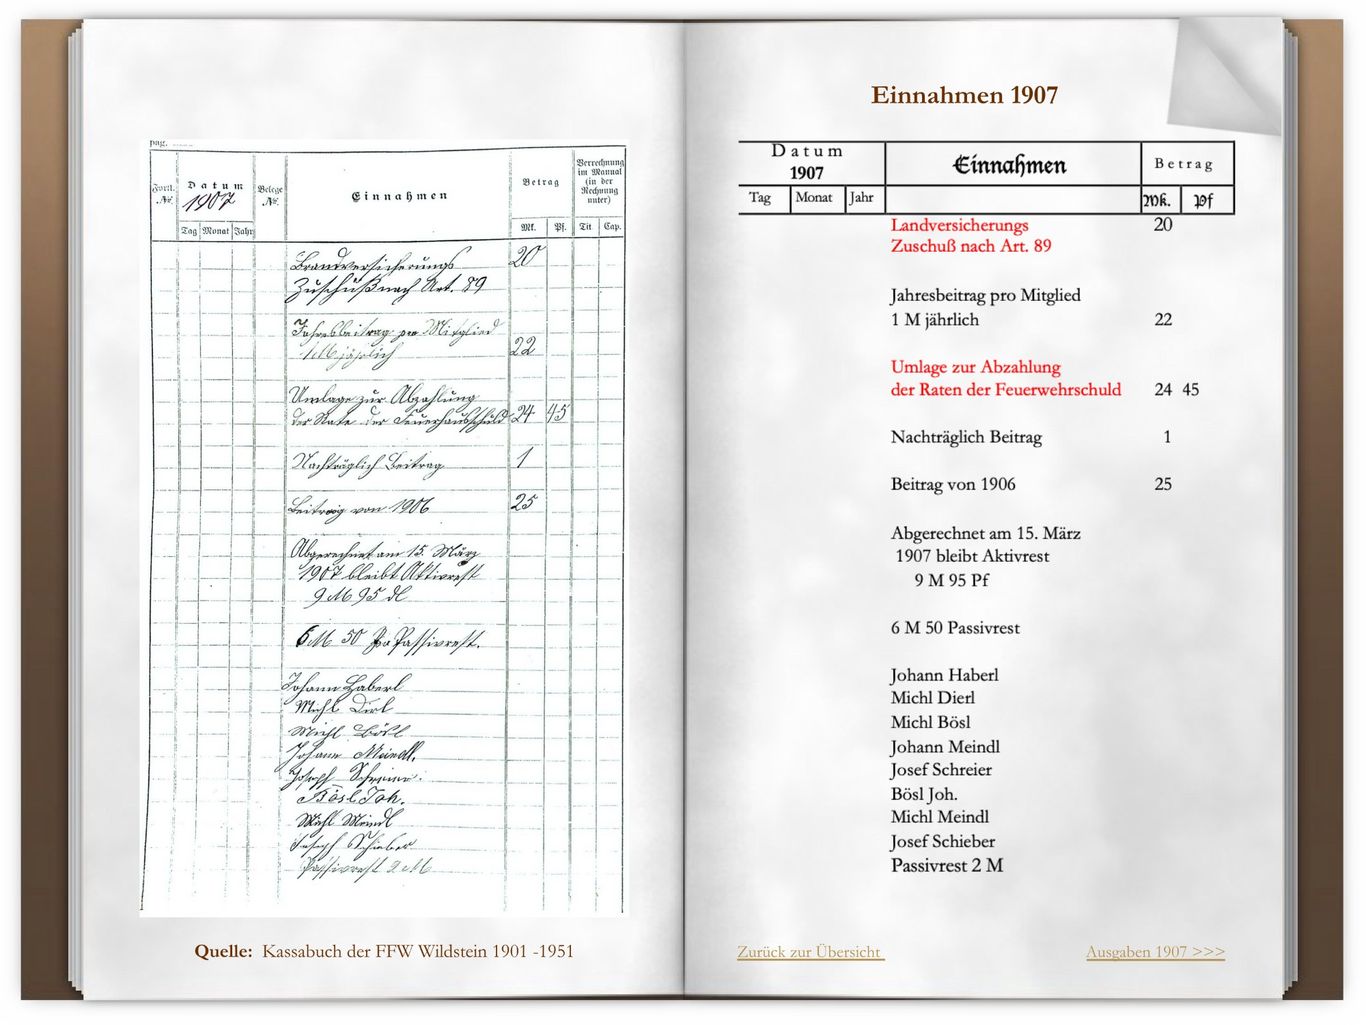 pag.
Fortl. No.
Datum
1907
Belege No.
Einnahmen
Betrag
Verrechnung im Manual (in der Rechnung unter)
Tag Monat Jahr
Mk. Pf. Tit Cap.
Brandversicherungs 20
Zuschuß nach Art. 89
Jahresbeitrag pro Mitglied
1 M jährlich 22
Umlage zur Abzahlung
der Rate der Feuerhausschuld 24 45
Nachträglich Beitrag 1
Beitrag von 1906 25
Abgerechnet am 15. März
1907 bleibt Aktivrest
9 M 95 dl
6 M 50 Passivrest.
Johann Haberl
Michl Dirl
Michl Bösl
Johann Meindl.
Joseph Schreier.
Bösl Joh.
Michl Meindl
Joseph Schieber
Passivrest 2 M
Quelle: Kassabuch der FFW Wildstein 1901 -1951
Einnahmen 1907
Datum
1907
Einnahmen
Betrag
Tag Monat Jahr
Mk. Pf
Landversicherungs 20
Zuschuß nach Art. 89
Jahresbeitrag pro Mitglied
1 M jährlich 22
Umlage zur Abzahlung
der Raten der Feuerwehrschuld 24 45
Nachträglich Beitrag 1
Beitrag von 1906 25
Abgerechnet am 15. März
1907 bleibt Aktivrest
9 M 95 Pf
6 M 50 Passivrest
Johann Haberl
Michl Dierl
Michl Bösl
Johann Meindl
Josef Schreier
Bösl Joh.
Michl Meindl
Josef Schieber
Passivrest 2 M
Zurück zur Übersicht
Ausgaben 1907 >>>